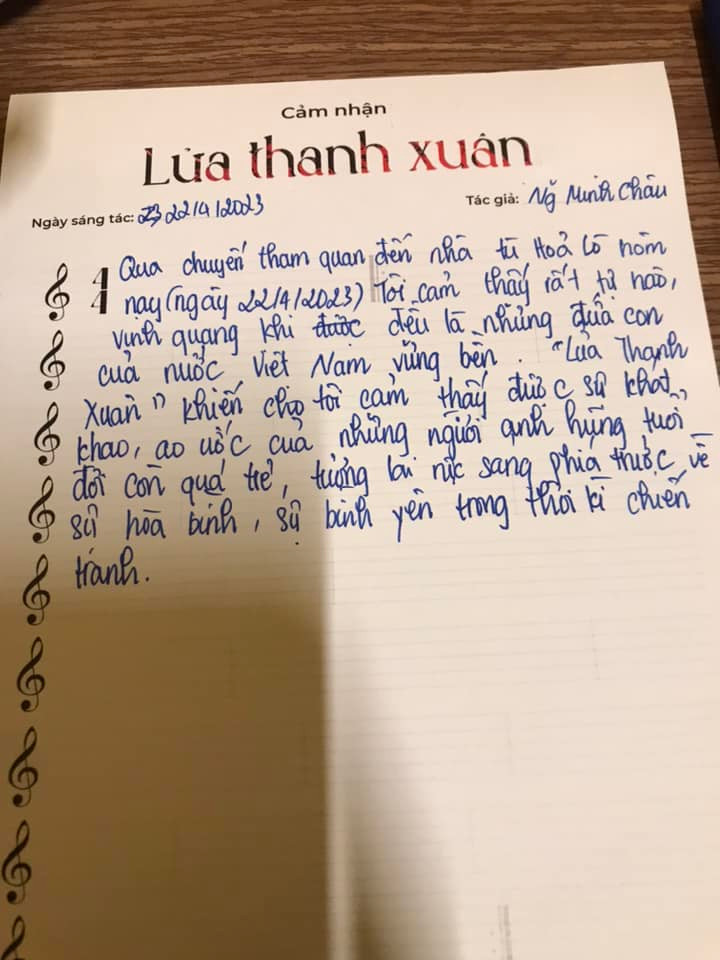 Cảm nhận
Lửa thanh xuân
Ngày sáng tác: 22/4/2023
Tác giả: Ng Minh Châu
4
4
Qua chuyến tham quan đến nhà tù Hoả Lò hôm
nay (ngày 22/4/2023) Tôi cảm thấy rất tự hào,
vinh quang khi được đều là những đứa con
của nước Việt Nam vững bền. "Lửa Thanh
Xuân" khiến cho tôi cảm thấy được sự khát
khao, ao ước của những người anh hùng tuổi
đời còn quá trẻ, tương lai rực sáng phía trước về
sự hòa bình, sự bình yên trong thời kì chiến
tranh.